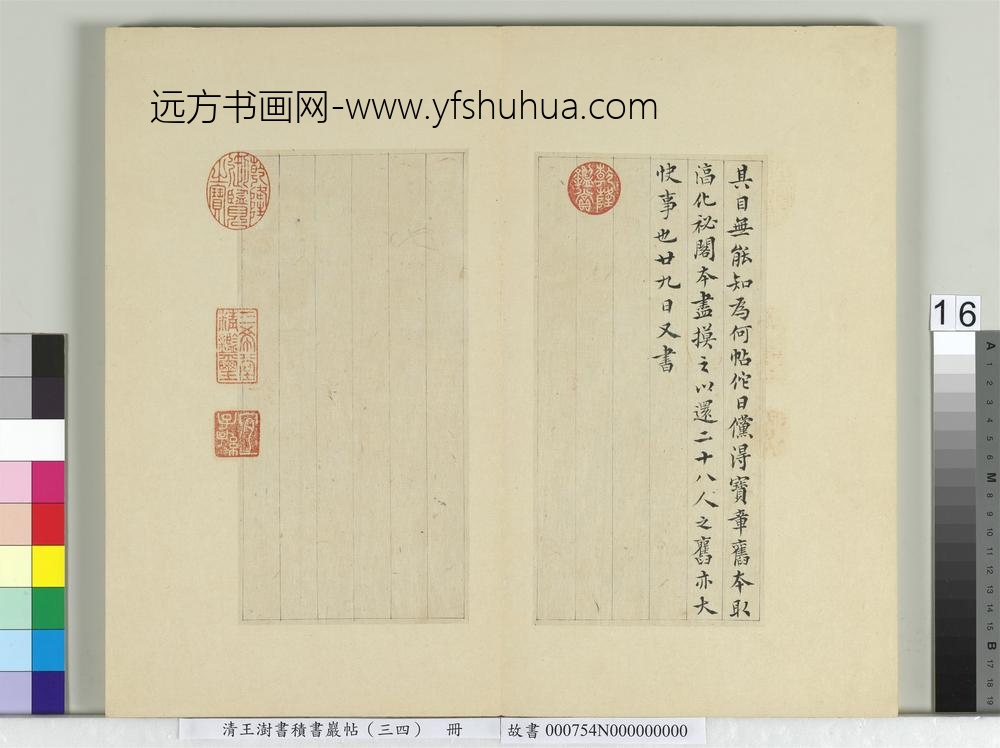 远方书画网-www.yfshuhua.com
其目無能知為何帖佗日儻得寶章舊本取
淳化祕閣本盡摸之以還二十八人之舊亦大
快事也廿九日又書
乾隆鑑賞
乾隆御覽之寶
三希堂精鑑璽
宜子孫
16
A
1
2
3
4
5
6
M
8
9
10
11
12
13
14
15
B
17
18
19
清王澍書積書巖帖（三四） 冊
故書 000754N000000000